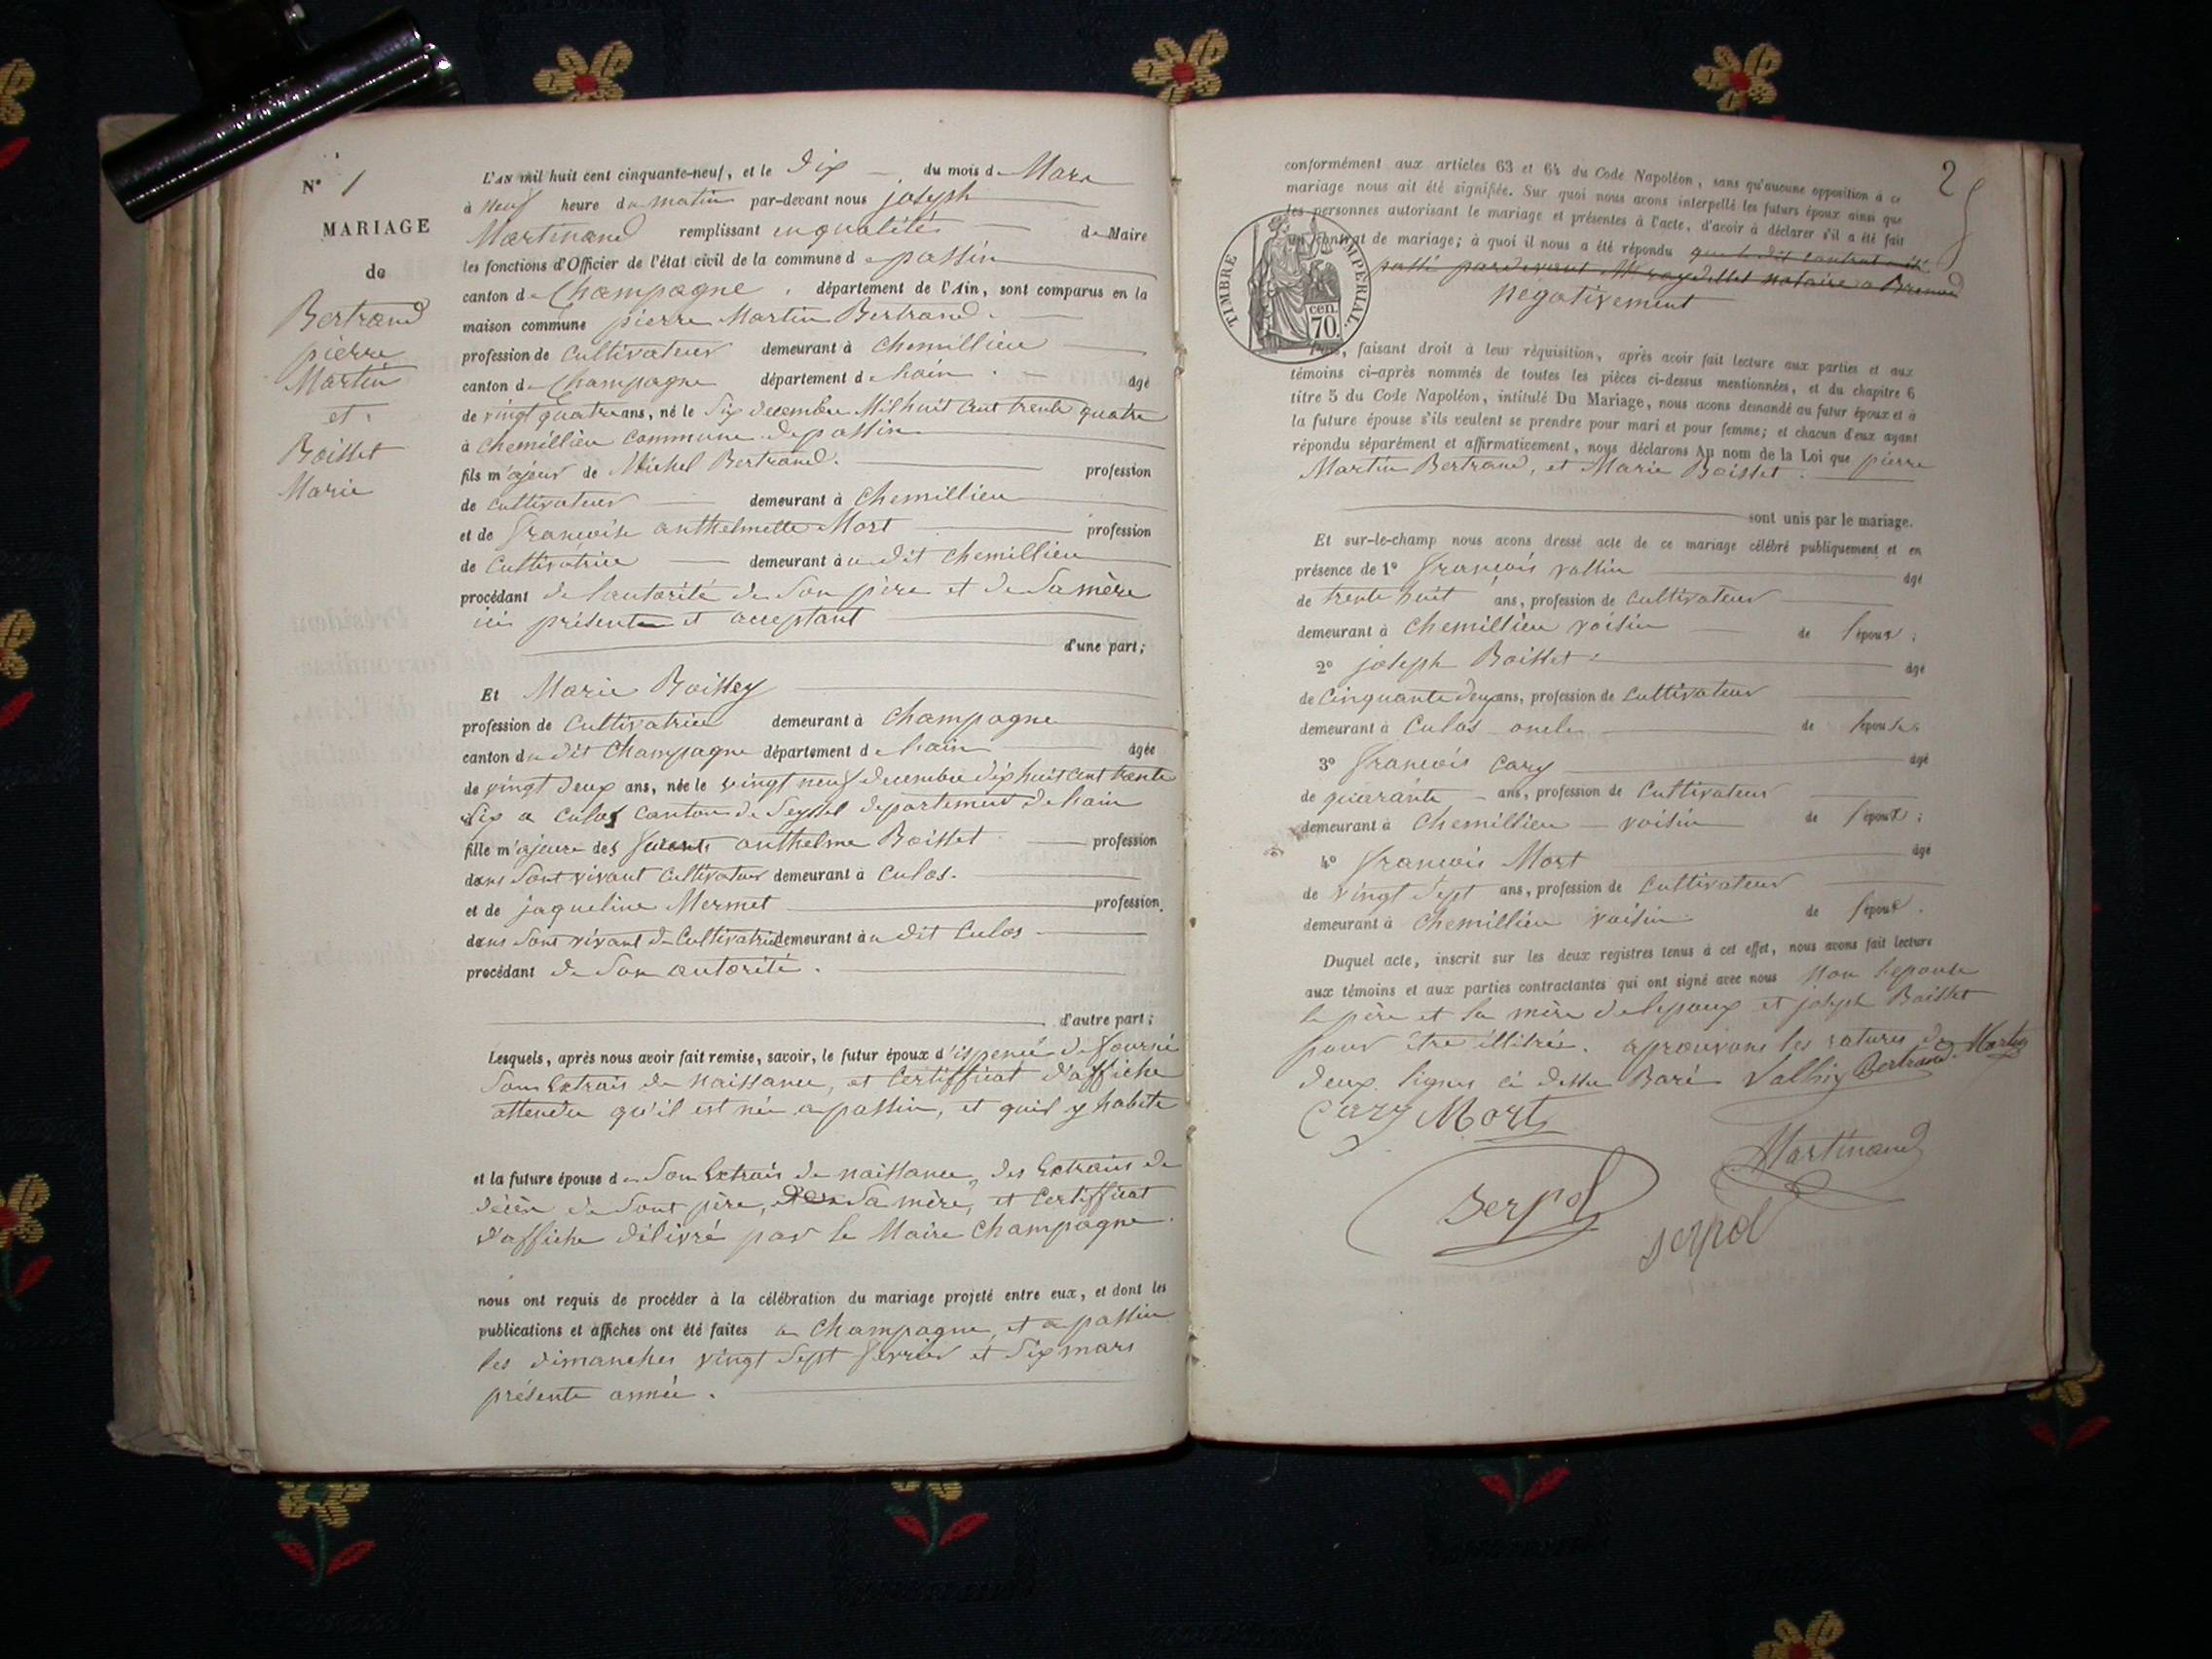 N° 1
MARIAGE
de
Bertrand
pierre
Martin
et
Boisset
Marie
L'AN mil huit cent cinquante-neuf, et le Dix du mois de Mars
à neuf heure du matin par-devant nous joseph
Martinand remplissant en qualité de Maire
les fonctions d'Officier de l'état civil de la commune de passin
canton de Champagne, département de l'Ain, sont comparus en la
maison commune pierre Martin Bertrand
profession de Cultivateur demeurant à Chemillieu
canton de Champagne département de lain âgé
de vingt quatre ans, né le Six decembre Mil huit Cent trente quatre
à Chemillieu Commune de passin
fils majeur de Michel Bertrand. profession
de cultivateur demeurant à Chemillieu
et de francoise anthelmette Mort profession
de Cultivatrice demeurant au dit Chemillieu
procédant de lautorité de Son père et de Samère
ici présente et acceptant
d'une part;
Et Marie Boissey
profession de Cultivatrice demeurant à Champagne
canton du dit Champagne département de lain âgée
de vingt Deux ans, née le vingt neuf decembre dix huit cent trente
Six a Culos Canton de Seyssel departement de lain
fille majeure des anthelme Boisset profession
dans Sont vivant Cultivateur demeurant à Culos.
et de jaqueline Mermet profession
dans Sont vivant de Cultivatrice demeurant au dit Culos
procédant de Son autorité.
d'autre part;
Lesquels, après nous avoir fait remise, savoir, le futur époux dispensé de fournir
Son Extrait de Naissance, et Certifficat d'affiche
attendu qu'il est née a passin, et quil y habite
et la future épouse de Son Extrais de naissance, des Extrais de
décès de Sont père, et de Sa mère, et Certifficat
d'affiche délivré par le Maire Champagne
nous ont requis de procéder à la célébration du mariage projeté entre eux, et dont les
publications et affiches ont été faites a Champagne, et a passin
les dimanches vingt Sept fevrier et Six mars
présente année.
2
conformément aux articles 63 et 64 du Code Napoléon, sans qu'aucune opposition à ce
mariage nous ait été signifiée. Sur quoi nous avons interpellé les futurs époux ainsi que
les personnes autorisant le mariage et présentes à l'acte, d'avoir à déclarer s'il a été fait
un contrat de mariage; à quoi il nous a été répondu que le dit Contrat a été
passé pardevant notaire a Brenod
negativement
TIMBRE IMPERIAL.
cen.
70.
Puis, faisant droit à leur réquisition, après avoir fait lecture aux parties et aux
témoins ci-après nommés de toutes les pièces ci-dessus mentionnées, et du chapitre 6
titre 5 du Code Napoléon, intitulé Du Mariage, nous avons demandé au futur époux et à
la future épouse s'ils veulent se prendre pour mari et pour femme; et chacun d'eux ayant
répondu séparément et affirmativement, nous déclarons Au nom de la Loi que pierre
Martin Bertrand, et Marie Boisset.
sont unis par le mariage.
Et sur-le-champ nous avons dressé acte de ce mariage célébré publiquement et en
présence de 1° francois vallin âgé
de trente huit ans, profession de Cultivateur
demeurant à Chemillieu voisin de l'époux;
2° joseph Boisset âgé
de Cinquante deux ans, profession de Cultivateur
demeurant à Culos oncle de l'épouse.
3° francois Cary âgé
de quarante ans, profession de Cultivateur
demeurant à Chemillieu voisin de l'époux;
4° francois Mort âgé
de vingt Sept ans, profession de Cultivateur
demeurant à Chemillieu voisin de l'époux.
Duquel acte, inscrit sur les deux registres tenus à cet effet, nous avons fait lecture
aux témoins et aux parties contractantes qui ont signé avec nous Non l'epouse
le père et la mère de lepoux et joseph Boisset
pour être illitrée. aprouvons les ratures de
deux lignes ci dessu Baré Vallin Bertrand Martin
Cary Mort
Martinand
Serpol
serpol